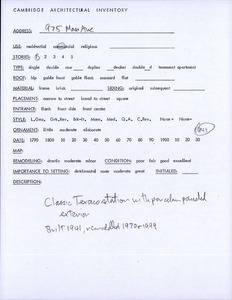 CAMBRIDGE ARCHITECTURAL INVENTORY
ADDRESS: 975 Mass Ave
USE: residential commercial religious
STORIES: 1 2 3 4 5
TYPE: single double row duplex decker double d. tenement apartment
ROOF: hip gable front gable flank mansard flat
MATERIAL: frame brick SIDING: original subsequent
PLACEMENT: narrow to street broad to street square
ENTRANCE: flank front side front center
STYLE: L.Geo. Grk.Rev. Brkt. Mans. Med. Q.A. C.Rev. None
ORNAMENT: little moderate elaborate 1941
DATE: 1790 1800 10 20 30 40 50 60 70 80 90 1900 10 20 30
MAP:
REMODELING: drastic moderate minor CONDITION: poor fair good excellent
IMPORTANCE TO SETTING: detrimental none moderate great INITIALED:
DESCRIPTION:
Classic Texaco station with porcelain paneled
exterior
Built 1941, remodelled 1970 + 1999